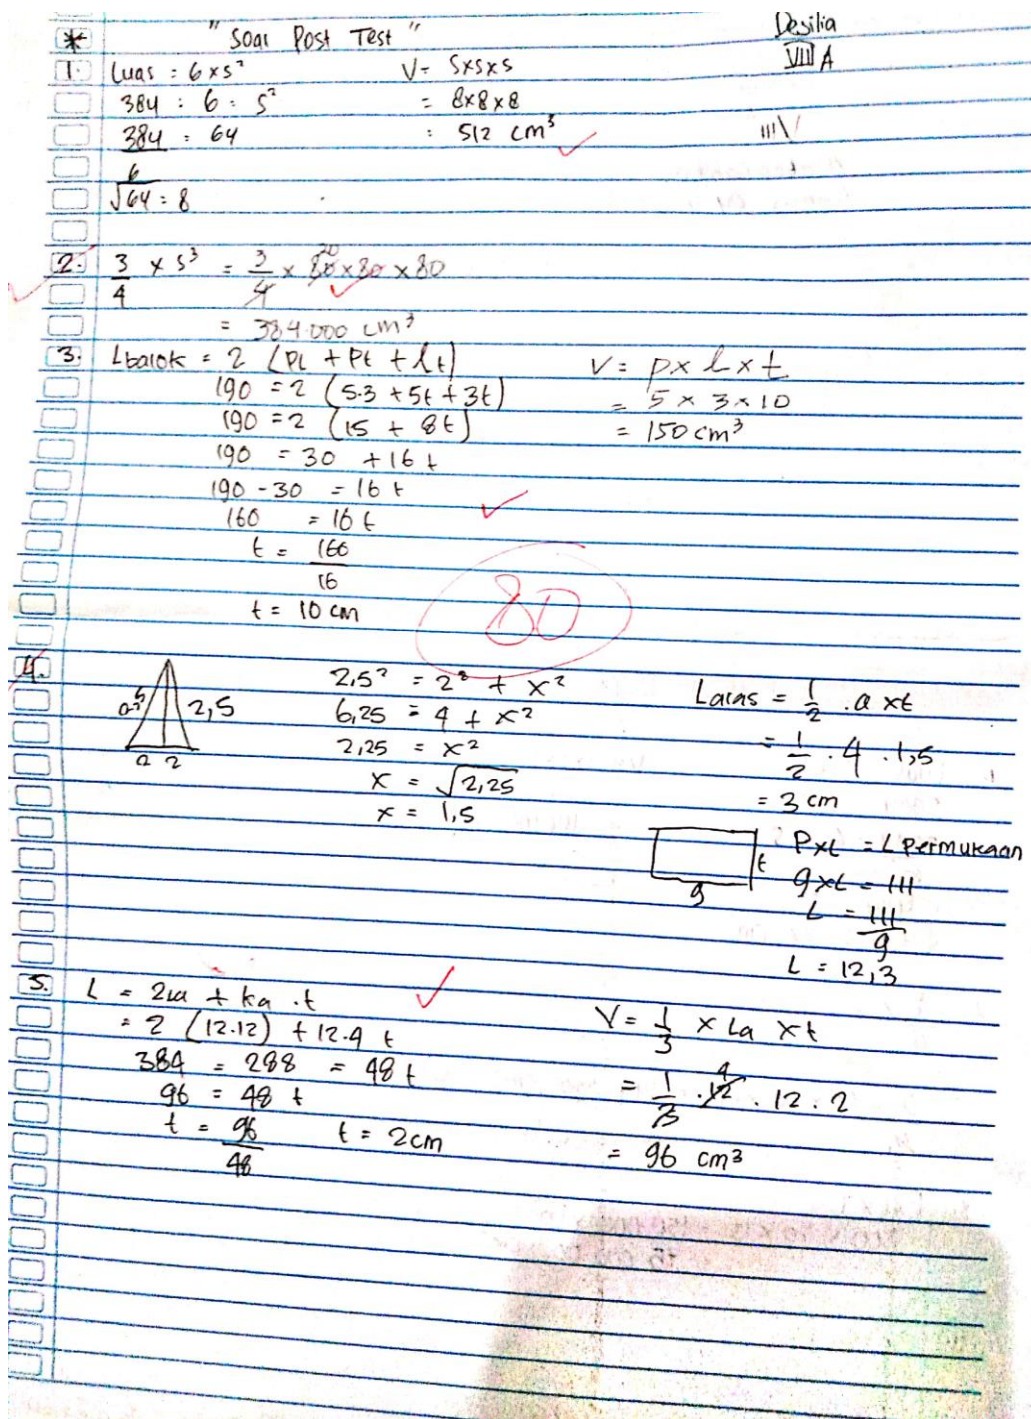 " Soal Post Test "
Desilia
VIII A
1. Luas : 6 x s²
384 : 6 = s²
384 : 64
6
√64 = 8
V = s x s x s
= 8x8x8
: 512 cm³
2. 3/4 x s³ = 3/4 x 80 x 80 x 80
20
= 384.000 cm³
3. Lbalok = 2 (Pl + Pt + lt)
190 = 2 (5.3 + 5t + 3t)
190 = 2 (15 + 8t)
190 = 30 + 16 t
190 - 30 = 16 t
160 = 16 t
t = 160/16
t = 10 cm
V = p x l x t
= 5 x 3 x 10
= 150 cm³
80
4.
2,5
a 2
2,5² = 2² + x²
6,25 = 4 + x²
2,25 = x²
x = √2,25
x = 1,5
Lalas = 1/2 . a xt
= 1/2 . 4 . 1,5
= 3 cm
t
9
Pxl = L Permukaan
9xl = 111
L = 111/9
L = 12,3
5. L = 2la + ka . t
= 2 (12.12) + 12.4 t
384 = 288 = 48 t
96 = 48 t
t = 96/48 t = 2cm
V = 1/3 x La x t
= 1/3 . 12 . 12 . 2
4
= 96 cm³